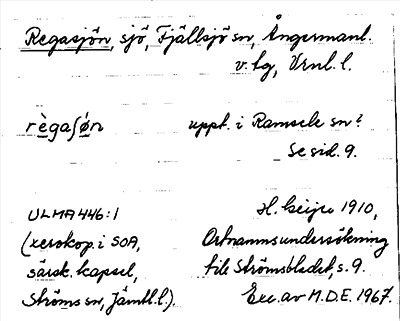 Regasjön, sjö, Fjällsjö sn, Ångermanl.
v. tg, Vrnl. l.
règaʃø̀n uppt. i Ramsele sn?
Se sid. 9.
ULMA 446:1 H. Geijer 1910,
(xerokop. i SOA, Ortnamnsundersökning
särsk. kapsel, till Strömsbladet, s. 9.
Ströms sn, Jämtl. l.). Exc. av M.D.E. 1967.